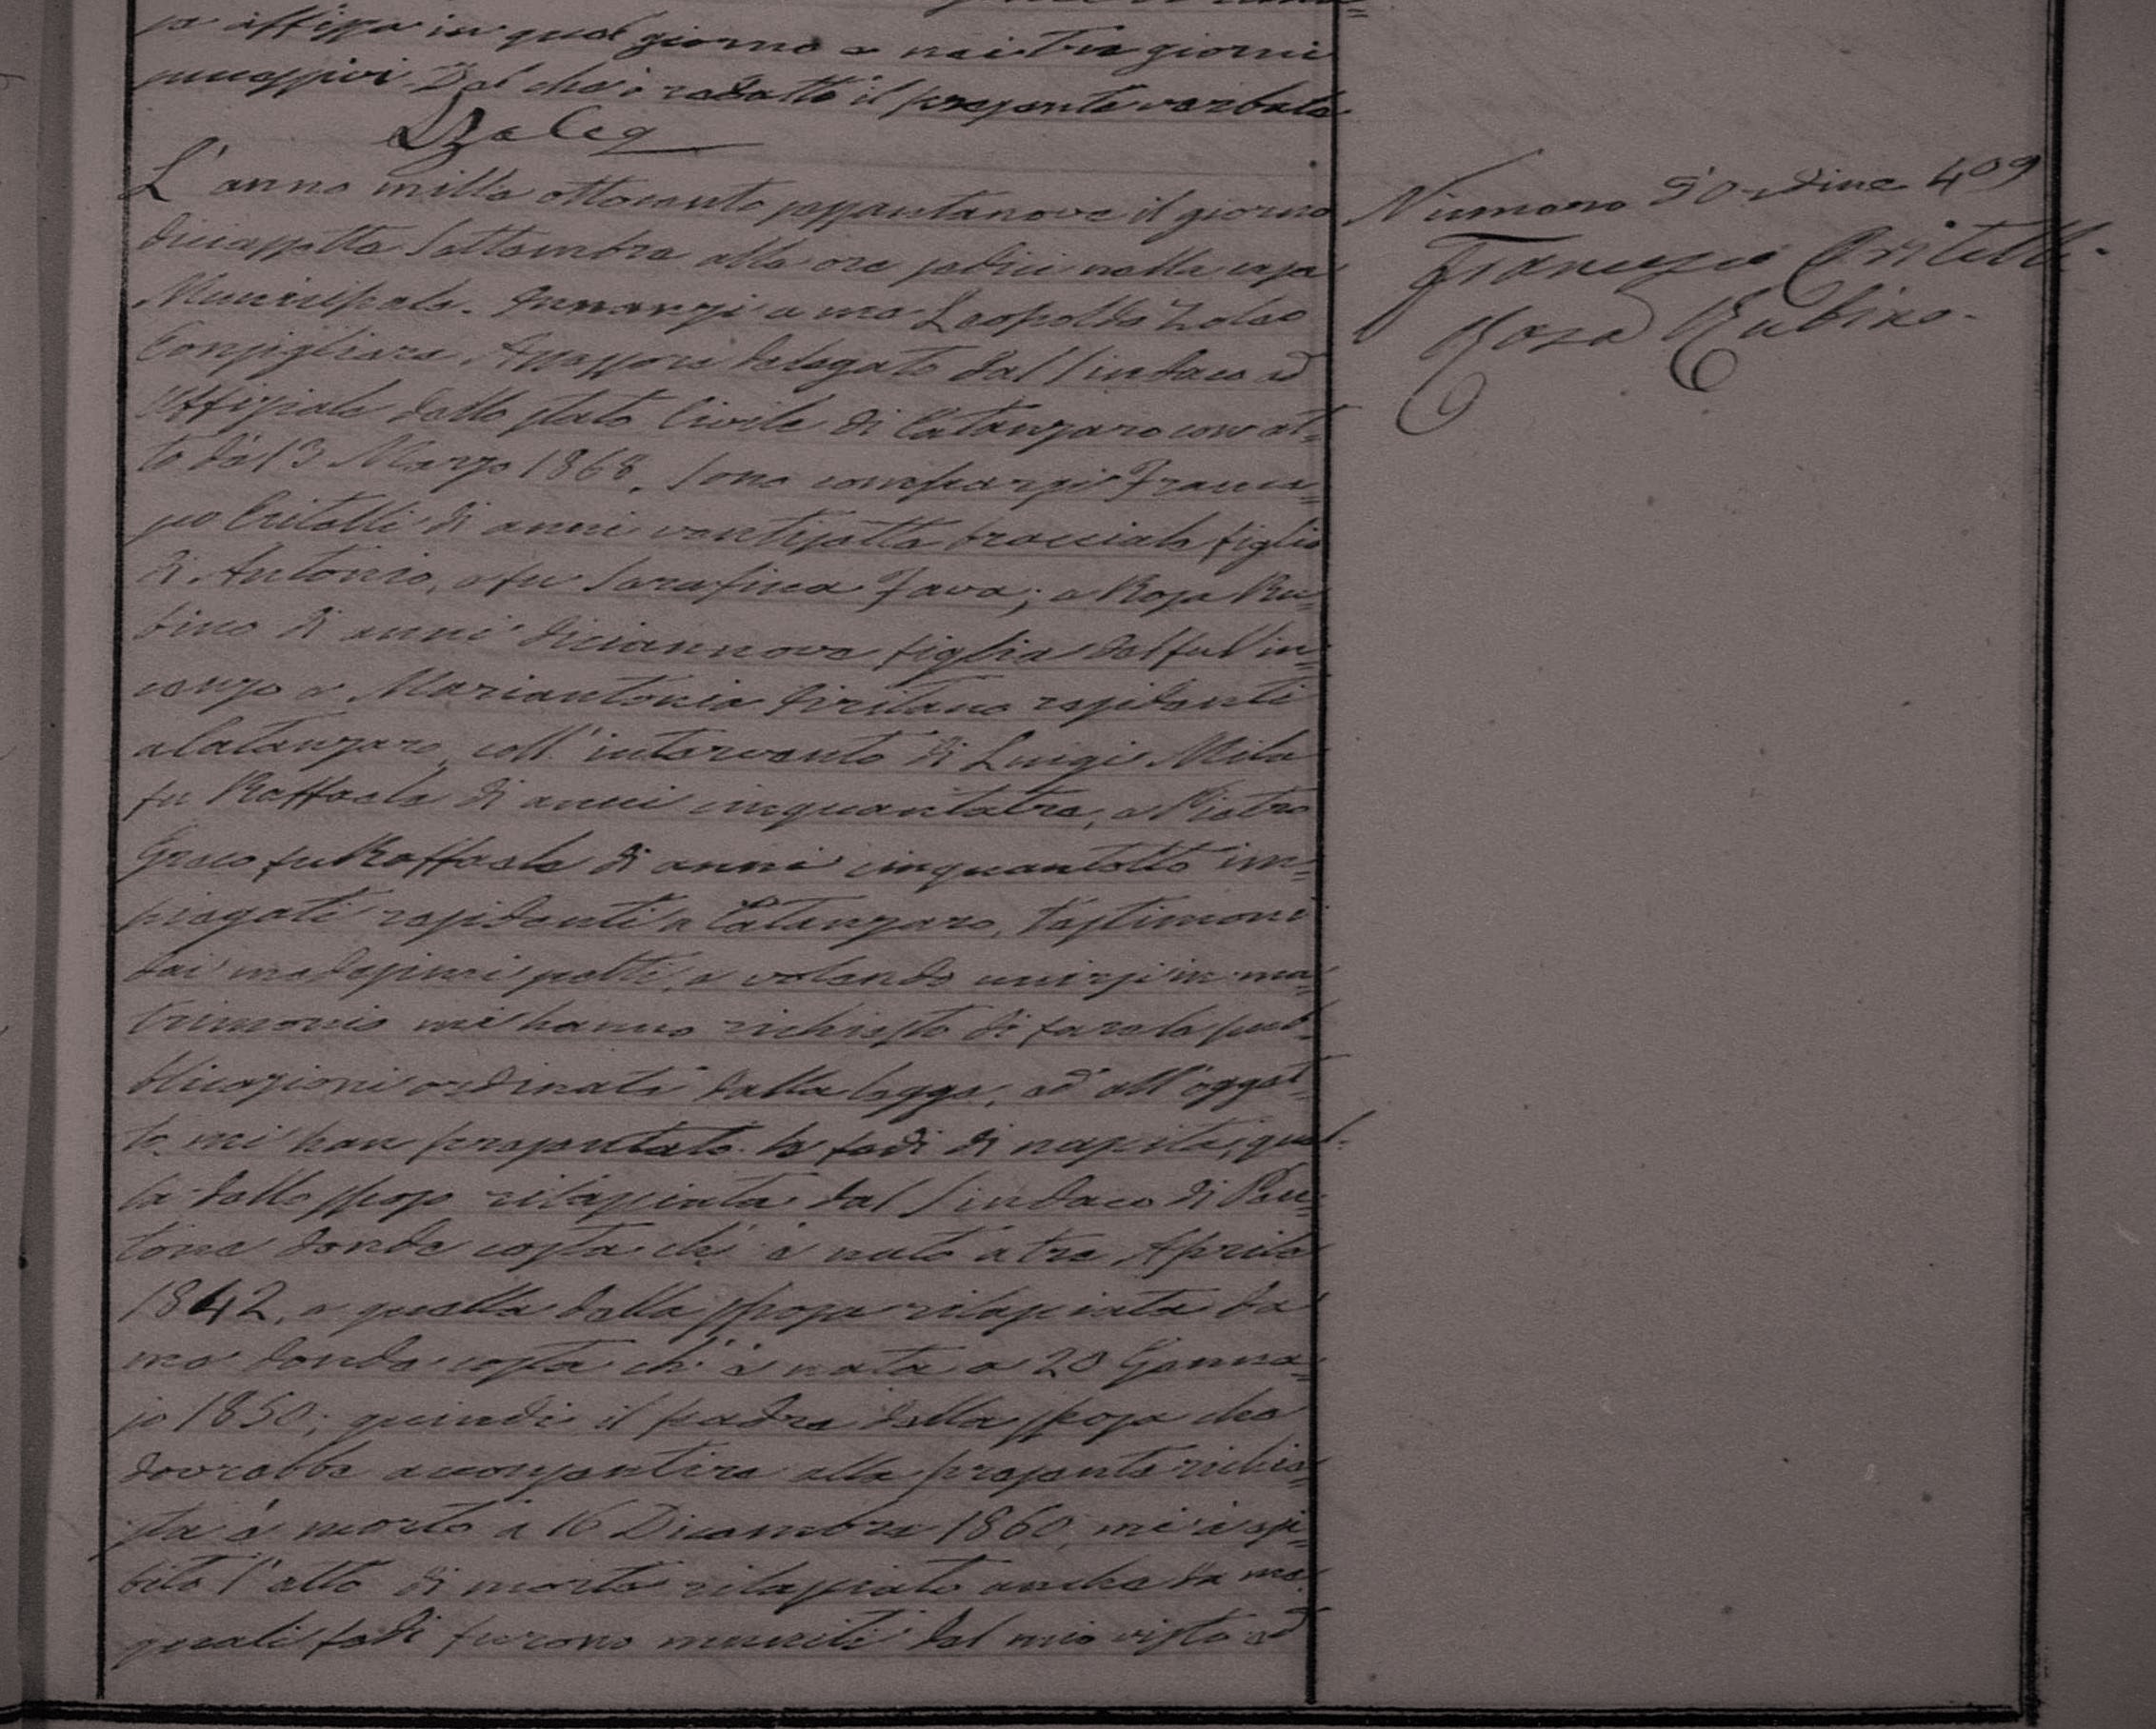 so affissa in quel giorno e nei tre giorni
successivi. Dal che è redatto il presente verbale
L Zaleo
L'anno mille ottocento sessantanove il giorno
diciassette Settembre alle ore sedici nella casa
Municipale. Innanzi a me Leopoldo Zaleo
Consigliere Assessore delegato dal Sindaco ad
Uffiziale dello stato Civile di Catanzaro con at=
to de' 13 Marzo 1868. Sono comparsi France=
sco Critelli di anni ventisette bracciale figlio
di Antonio, e fu Serafina Fava; e Rosa Ru=
bino di anni diciannove figlia del fu Vin=
cenzo e Mariantonia residenti
a Catanzaro, coll'intervento di Luigi Mila
fu Raffaele di anni cinquantatre, e Pietro
Greco fu Raffaele di anni cinquantotto im=
piegati residenti a Catanzaro, testimoni
dai medesimi scelti, e volendo unirsi in ma=
trimonio mi hanno richiesto di fare le pub=
blicazioni ordinate dalla legge, ed all'ogget=
to mi han presentato le fedi di nascita, quel=
la dello sposo rilasciata dal Sindaco di Pen=
tone donde costa ch'è nato a tre Aprile
1842, e quella della sposa rilasciata da
me donde costa ch'è nata a 20 Genna=
jo 1850; quindi il padre della sposa che
dovrebbe acconsentire alla presente richie=
sta è morto a 16 Dicembre 1860, mi è esi=
bito l'atto di morte rilasciato anche da me,
quali fedi furono muniti dal mio visto ed
Numero d'ordine 409
Francesco Critelli
Rosa Rubino